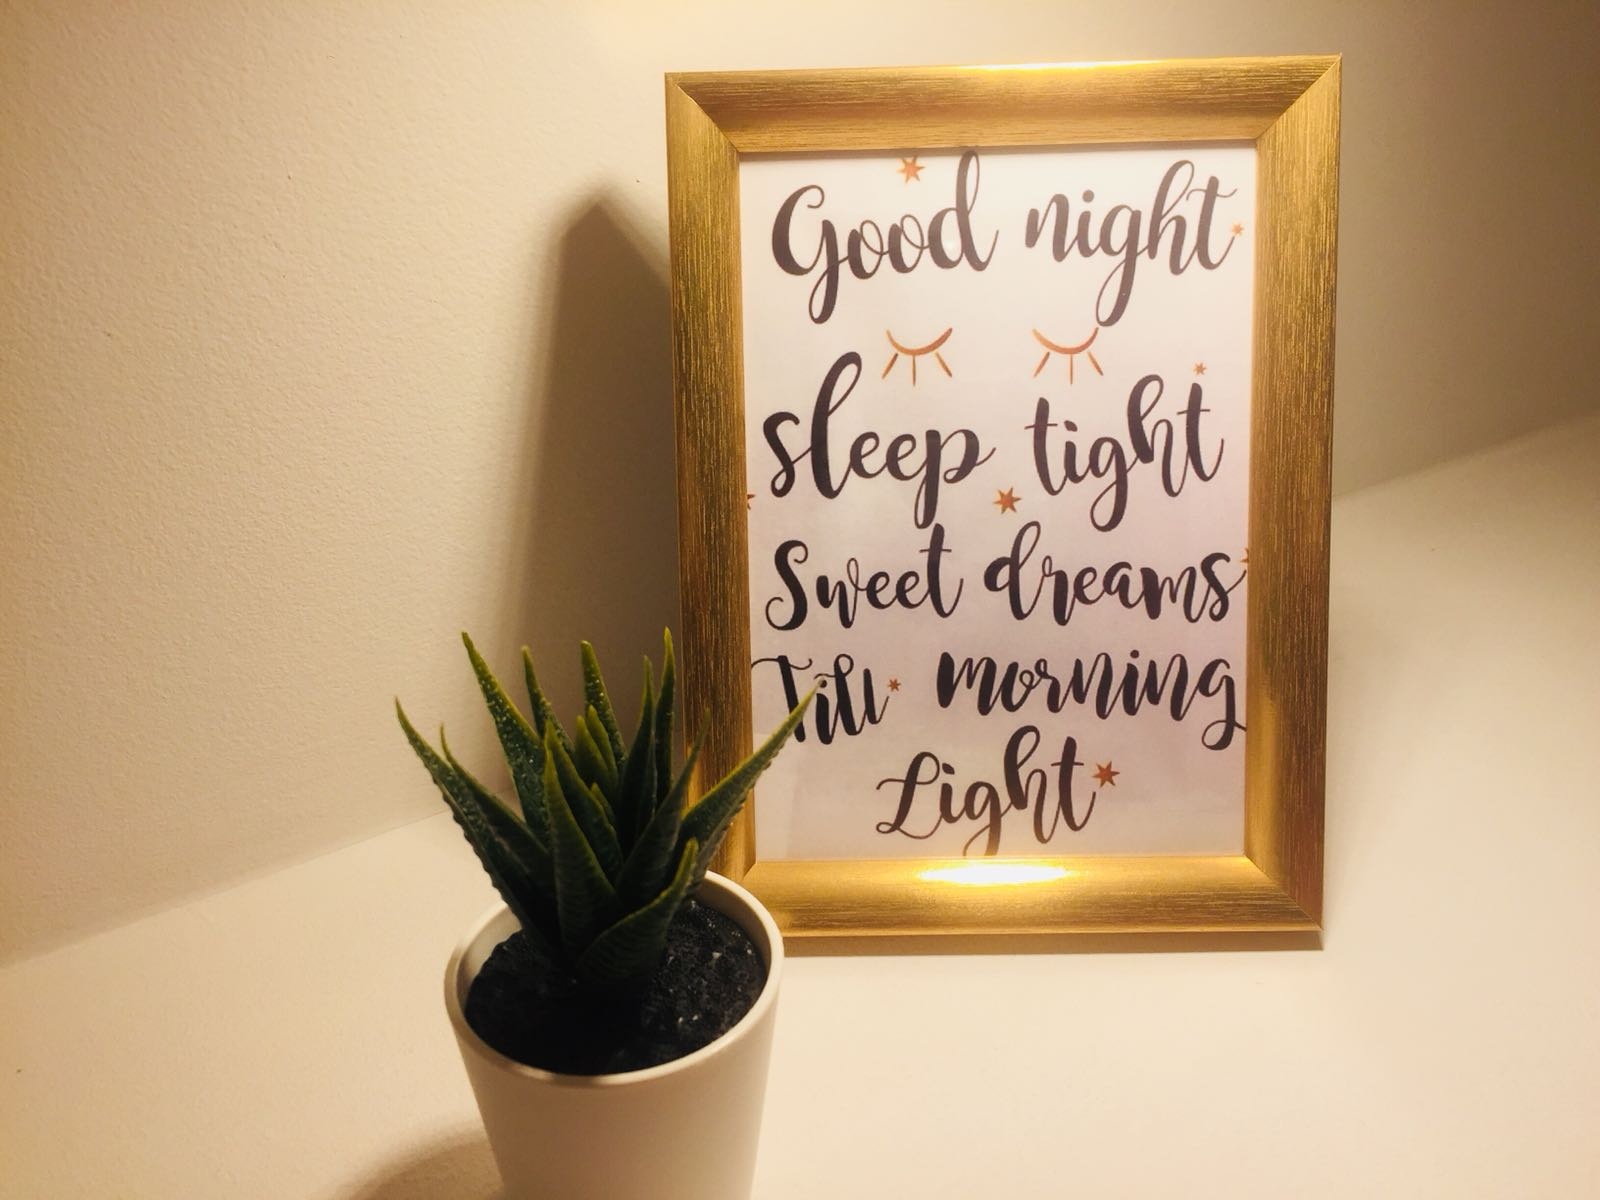 Good night
sleep tight
Sweet dreams
Till morning
Light